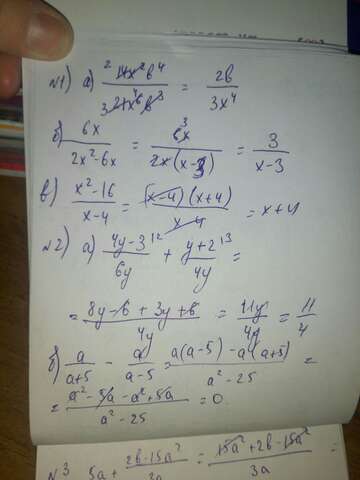 №1) а) 14x²b⁴ / 21x⁶b³ = 2b / 3x⁴
б) 6x / 2x²-6x = 6x / 2x(x-3) = 3 / x-3
в) x²-16 / x-4 = (x-4)(x+4) / x-4 = x+4
№2) а) 4y-3 |2 / 6y + y+2 |3 / 4y =
= 8y-6+3y+6 / 4y = 11y / 4y = 11 / 4
б) a / a+5 - a / a-5 = a(a-5)-a(a+5) / a²-25 =
= a²-5a-a²+5a / a²-25 = 0
№3 5a+ 2b-15a² / 3a = 15a²+2b-15a² / 3a =